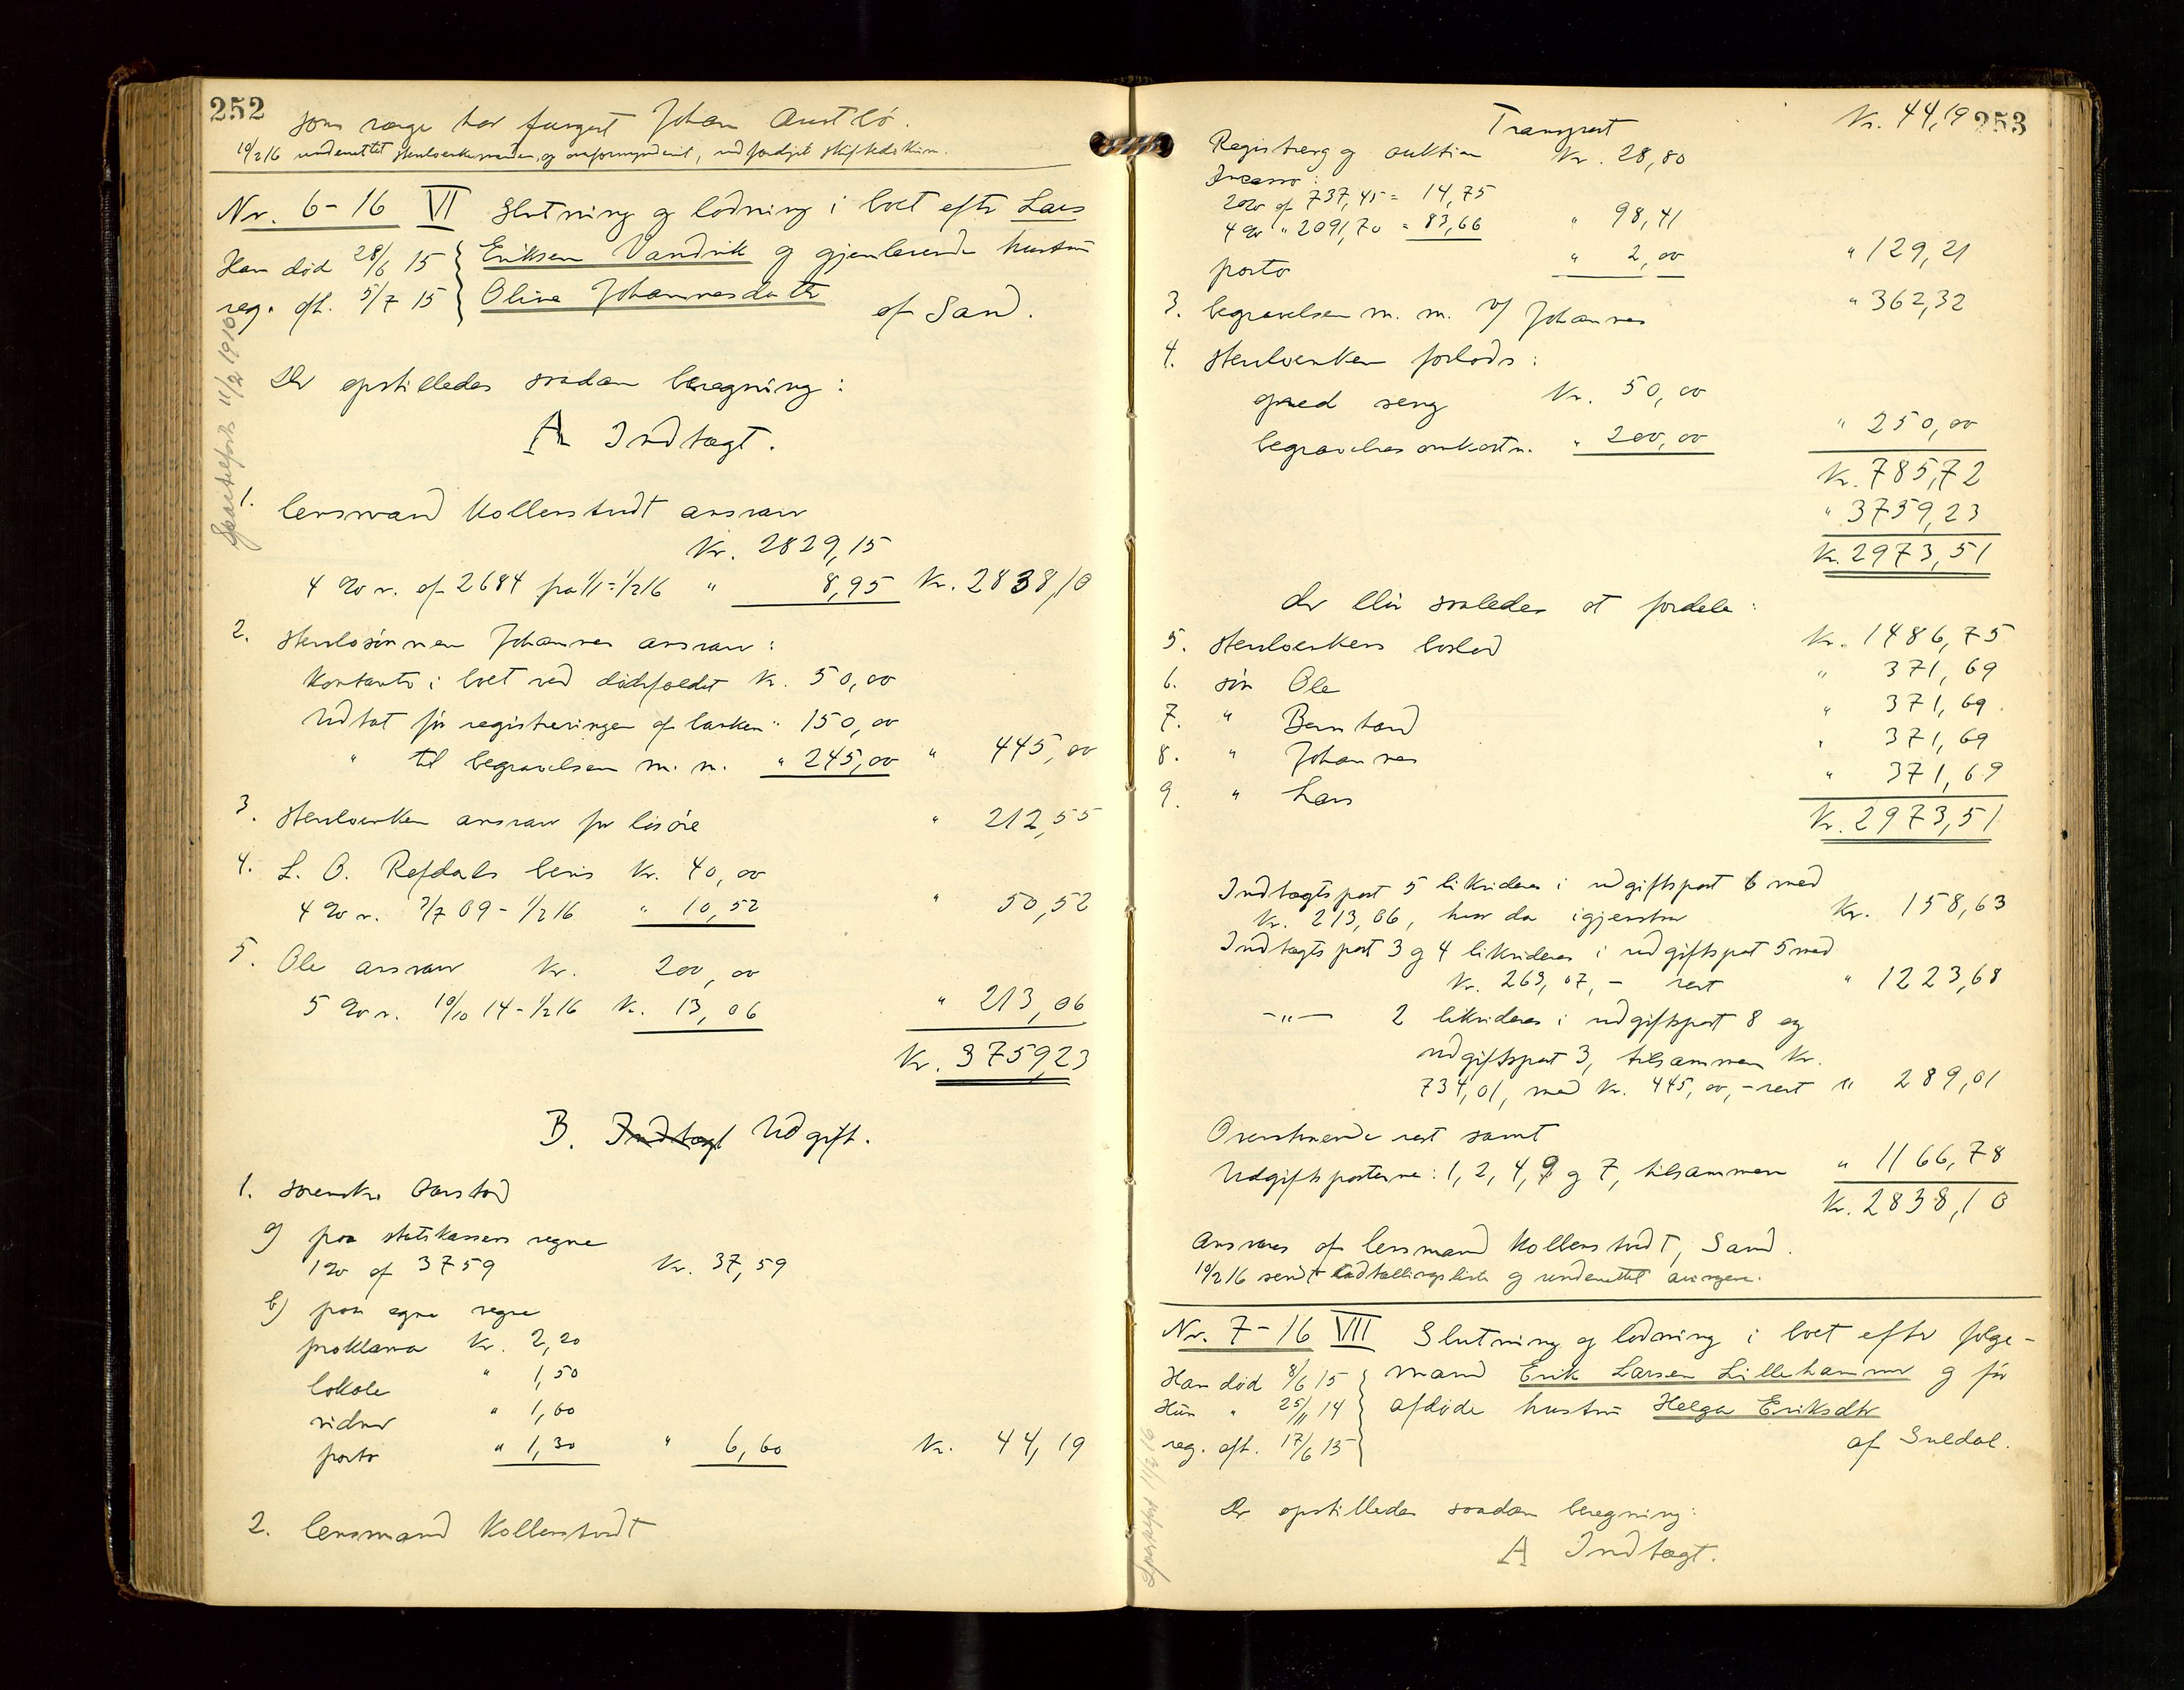 252
som værge har fungert Johan Austbö.
10/2 16 underrettet Henl.enkemanden, og overformynderiet, udfærdiget skiftedokum.
Nr. 6-16 VII Slutning og lodning i boet efter Lars
Han död 28/6 15 Eriksen Vandvik og gjenlevende hustru
reg. aft. 5/7 15 Oline Johannesdatter
af Sand.
11/2 1916
Der opstilledes saadan beregning:
A Indtægt.
1. lensmand Kollenstvedt ansvar
Kr. 2829,15
4 % r. af 2684 fra 1/1-1/2 16 " 8,95 Kr. 2838,10
2. Stervbosönnen Johannes ansvar:
Kontante i boet ved dödsfaldet Kr. 50,00
Udtat för registreringen af banken " 150,00
" til begravelsen m. m. " 245,00 " 445,00
3. Stervboenken ansvar for lösöre " 212,55
4. L. O. Refdals bevis Kr. 40,00
4 % r. 7/7 09 - 1/2 16 " 10,52 " 50,52
5. Ole ansvar Kr. 200,00
5 % r. 10/10 14 - 1/2 16 Kr. 13,06 " 213,06
Kr. 3759,23
B. Indtægt Udgift.
1. sorenskr. Aarstad
a) paa statskassens regne
1 % af 3759 Kr. 37,59
b) paa egne regne
proklama Kr. 2,20
lokale " 1,50
vidner " 1,60
porto " 1,30 " 6,60 Kr. 44,19
2. lensmand Kollenstvedt
253
Transport Kr. 44,19
Registrerg og auktion Kr. 28,80
Incasso:
2 % af 737,45 = 14,75
4 % " 2091,70 = 83,66 " 98,41
porto " 2,00 " 129,21
3. begravelsen m. m. v/ Johannes " 362,32
4. Stervboenken forlods:
opred seng Kr. 50,00
begravelsesomkostn. " 200,00 " 250,00
Kr. 785,72
" 3759,23
Kr. 2973,51
der blir saaledes at fordele:
5. Stervboenkens boslod Kr. 1486,75
6. sön Ole " 371,69
7. " Berntard " 371,69
8. " Johannes " 371,69
9. " Lars " 371,69
Kr. 2973,51
Indtægtspost 5 likvideres i udgiftspost 6 med
Kr. 213,06, hvor da igjenstaar Kr. 158,63
Indtægtspost 3 og 4 likvideres i udgiftspost 5 med
Kr. 263,07, - rest " 1223,68
-"- 2 likvideres i udgiftspost 8 og
udgiftspost 3, tilsammen Kr.
734,01, med Kr. 445,00, - rest " 289,01
Ovenstaaende rest samt
Udgiftsposterne: 1, 2, 4, 9 og 7, tilsammen " 1166,78
Kr. 2838,10
Ansvares af lensmand Kollenstvedt, Sand.
10/2 16 sendt udtællingsliste og underrettet arvingene.
Nr. 7-16 VIII Slutning og lodning i boet efter följe-
Han död 8/6 15 mand Erik Larsen Lillehammer og för
Hun " 25/11 14 afdöde hustru Helga Eriksdtr
reg. aft. 17/6 15 af Suldal.
11/2 16
Der opstilledes saadan beregning:
A Indtægt.